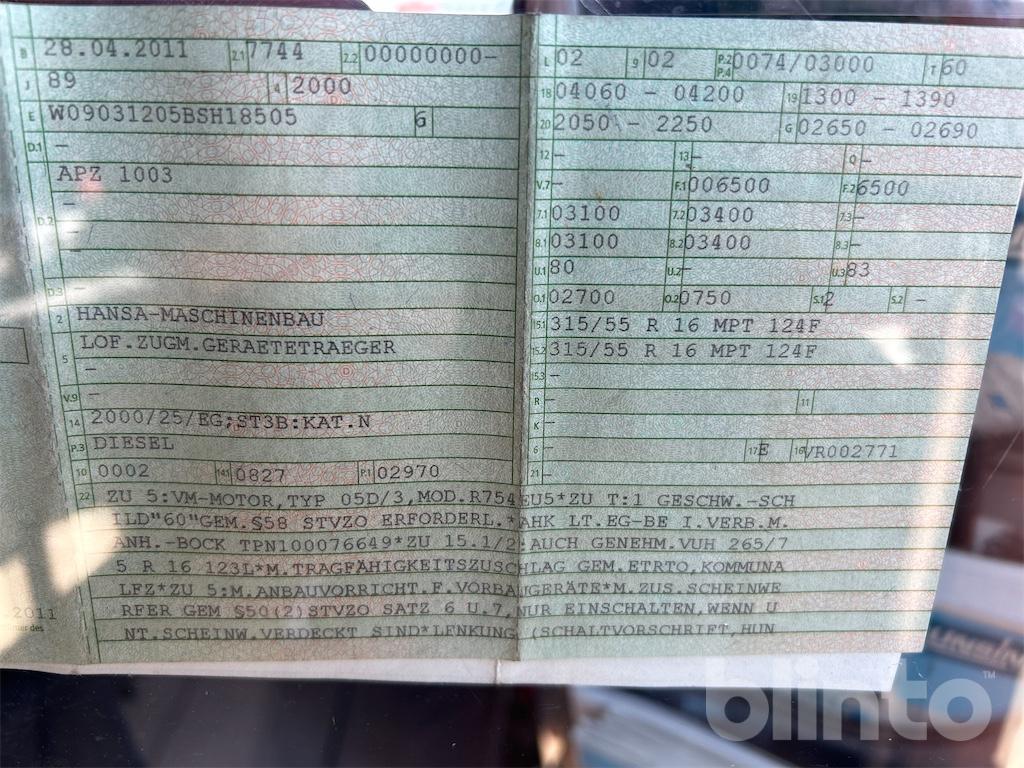 B 28.04.2011 2.1 7744 2.2 00000000-
J 89 4 2000
E W09031205BSH18505 6
D.1 -
APZ 1003
-
D.2 -
-
D.3 -
2 HANSA-MASCHINENBAU
5 LOF.ZUGM.GERAETETRAEGER
-
V.9 -
14 2000/25/EG;ST3B:KAT.N
P.3 DIESEL
10 0002 14.1 0827 P.1 02970
L 02 9 02 P.2 P.4 0074/03000 T 60
18 04060 - 04200 19 1300 - 1390
20 2050 - 2250 G 02650 - 02690
12 - 13 - Q -
V.7 - F.1 006500 F.2 6500
7.1 03100 7.2 03400 7.3 -
8.1 03100 8.2 03400 8.3 -
U.1 80 U.2 - U.3 83
O.1 02700 O.2 0750 S.1 2 S.2 -
15.1 315/55 R 16 MPT 124F
15.2 315/55 R 16 MPT 124F
15.3 -
R - 11
K -
6 - 17 E 16 VR002771
21 -
22 ZU 5:VM-MOTOR,TYP 05D/3,MOD.R754EU5*ZU T:1 GESCHW.-SCH
ILD"60"GEM.§58 STVZO ERFORDERL.*AHK LT.EG-BE I.VERB.M.
ANH.-BOCK TPN100076649*ZU 15.1/2:AUCH GENEHM.VUH 265/7
5 R 16 123L*M.TRAGFÄHIGKEITSZUSCHLAG GEM.ETRTO,KOMMUNA
LFZ*ZU 5:M.ANBAUVORRICHT.F.VORBANGERÄTE*M.ZUS.SCHEINWE
RFER GEM §50(2)STVZO SATZ 6 U.7,NUR EINSCHALTEN,WENN U
NT.SCHEINW.VERDECKT SIND*LENKUNG (SCHALTVORSCHRIFT,HUN
2011
blinto™